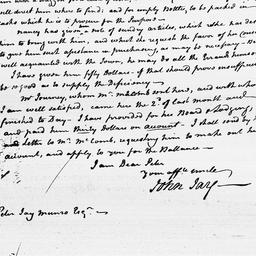 will direct him where to find; and for empty Bottles, to be packed in
casks which he is to procure for the Purpose.—
Nancy has given a list of sundry articles, which she has desired
him to bring with him, and which she requests the favor of her Cousin
to give him such assistance in purchasing, as may be necessary. Being
well acquainted with the Town, he may do all the Errands himself.
I have given him fifty Dollars—if that should prove insufficient
be so good as to supply the Deficiency—
Mr Journey, whom Mr. recommended, and with whom
I am well satisfied, came here the 2d of last month and
finished to Day. I have provided for his Board & Lodging,
and paid him thirty Dollars on account. I shall send by
a letter to Mr. McComb, requesting him to make out his
account, and apply to you for the Ballance—
I am Dear Peter
your affte. uncle
John Jay—
Peter Jay Munro Esqr.—